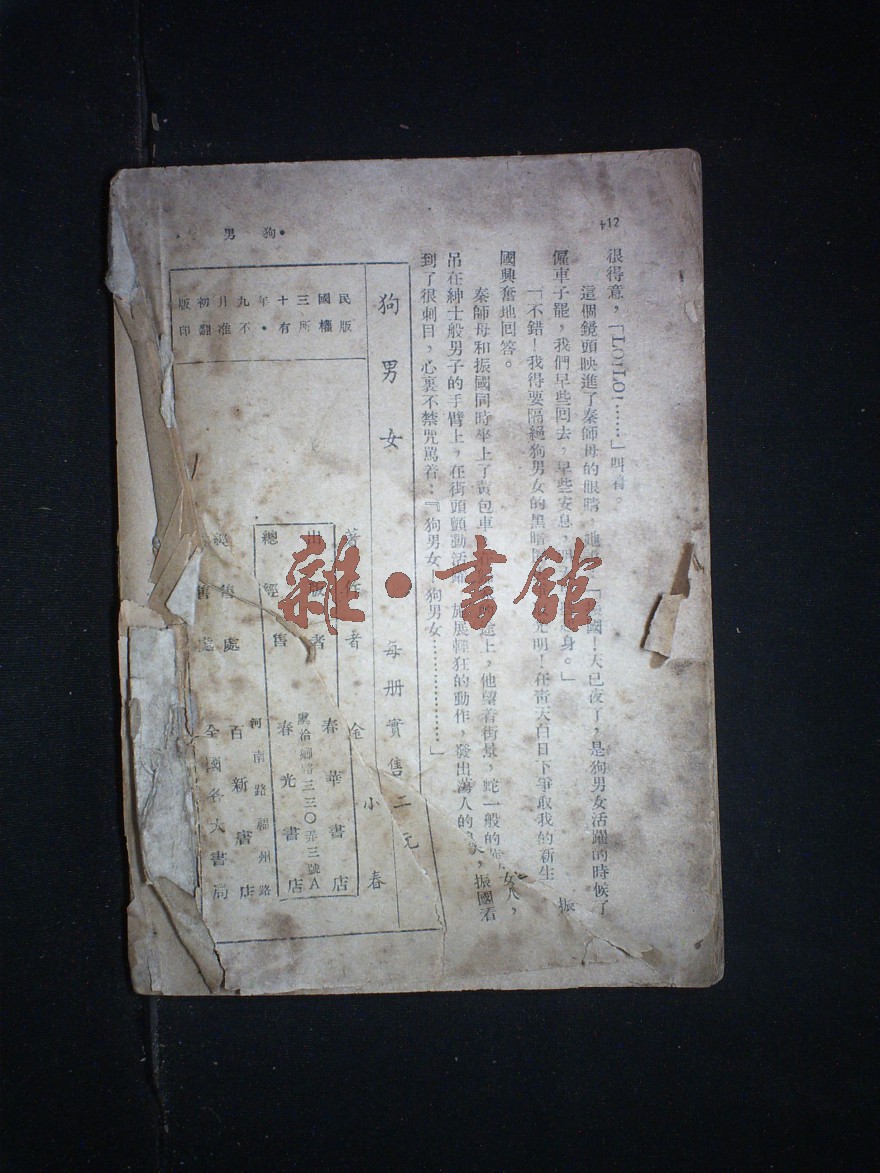 412
很得意，「LOLLO！……」叫着。
這個鏡頭映進了秦師母的眼睛，國！天已夜了，是狗男女活躍的時候了
僱車子罷，我們早些回去，早些安息，身。」
「不錯！我得要隔絕狗男女的黑暗光明！在靑天白日下爭取我的新生振
國興奮地回答。
秦師母和振國同時坐上了黃包車途上，他望着街景，蛇一般的女人，
吊在紳士般男子的手臂上，在街頭顫動活躍施展輕狂的動作，發出萬人的振國看
到了很刺目，心裏不禁咒罵着：『狗男女！狗男女………………」
•狗男
狗男女
每册實售二元
民國三十年九月初版
版權所有•不准翻印
著作者 金小春
出版者 春華書店
黑治鄉路三三〇弄三號A
總經售 春光書店
河南路福州路
售處 百新書店
售處 全國各大書局
雜•書館